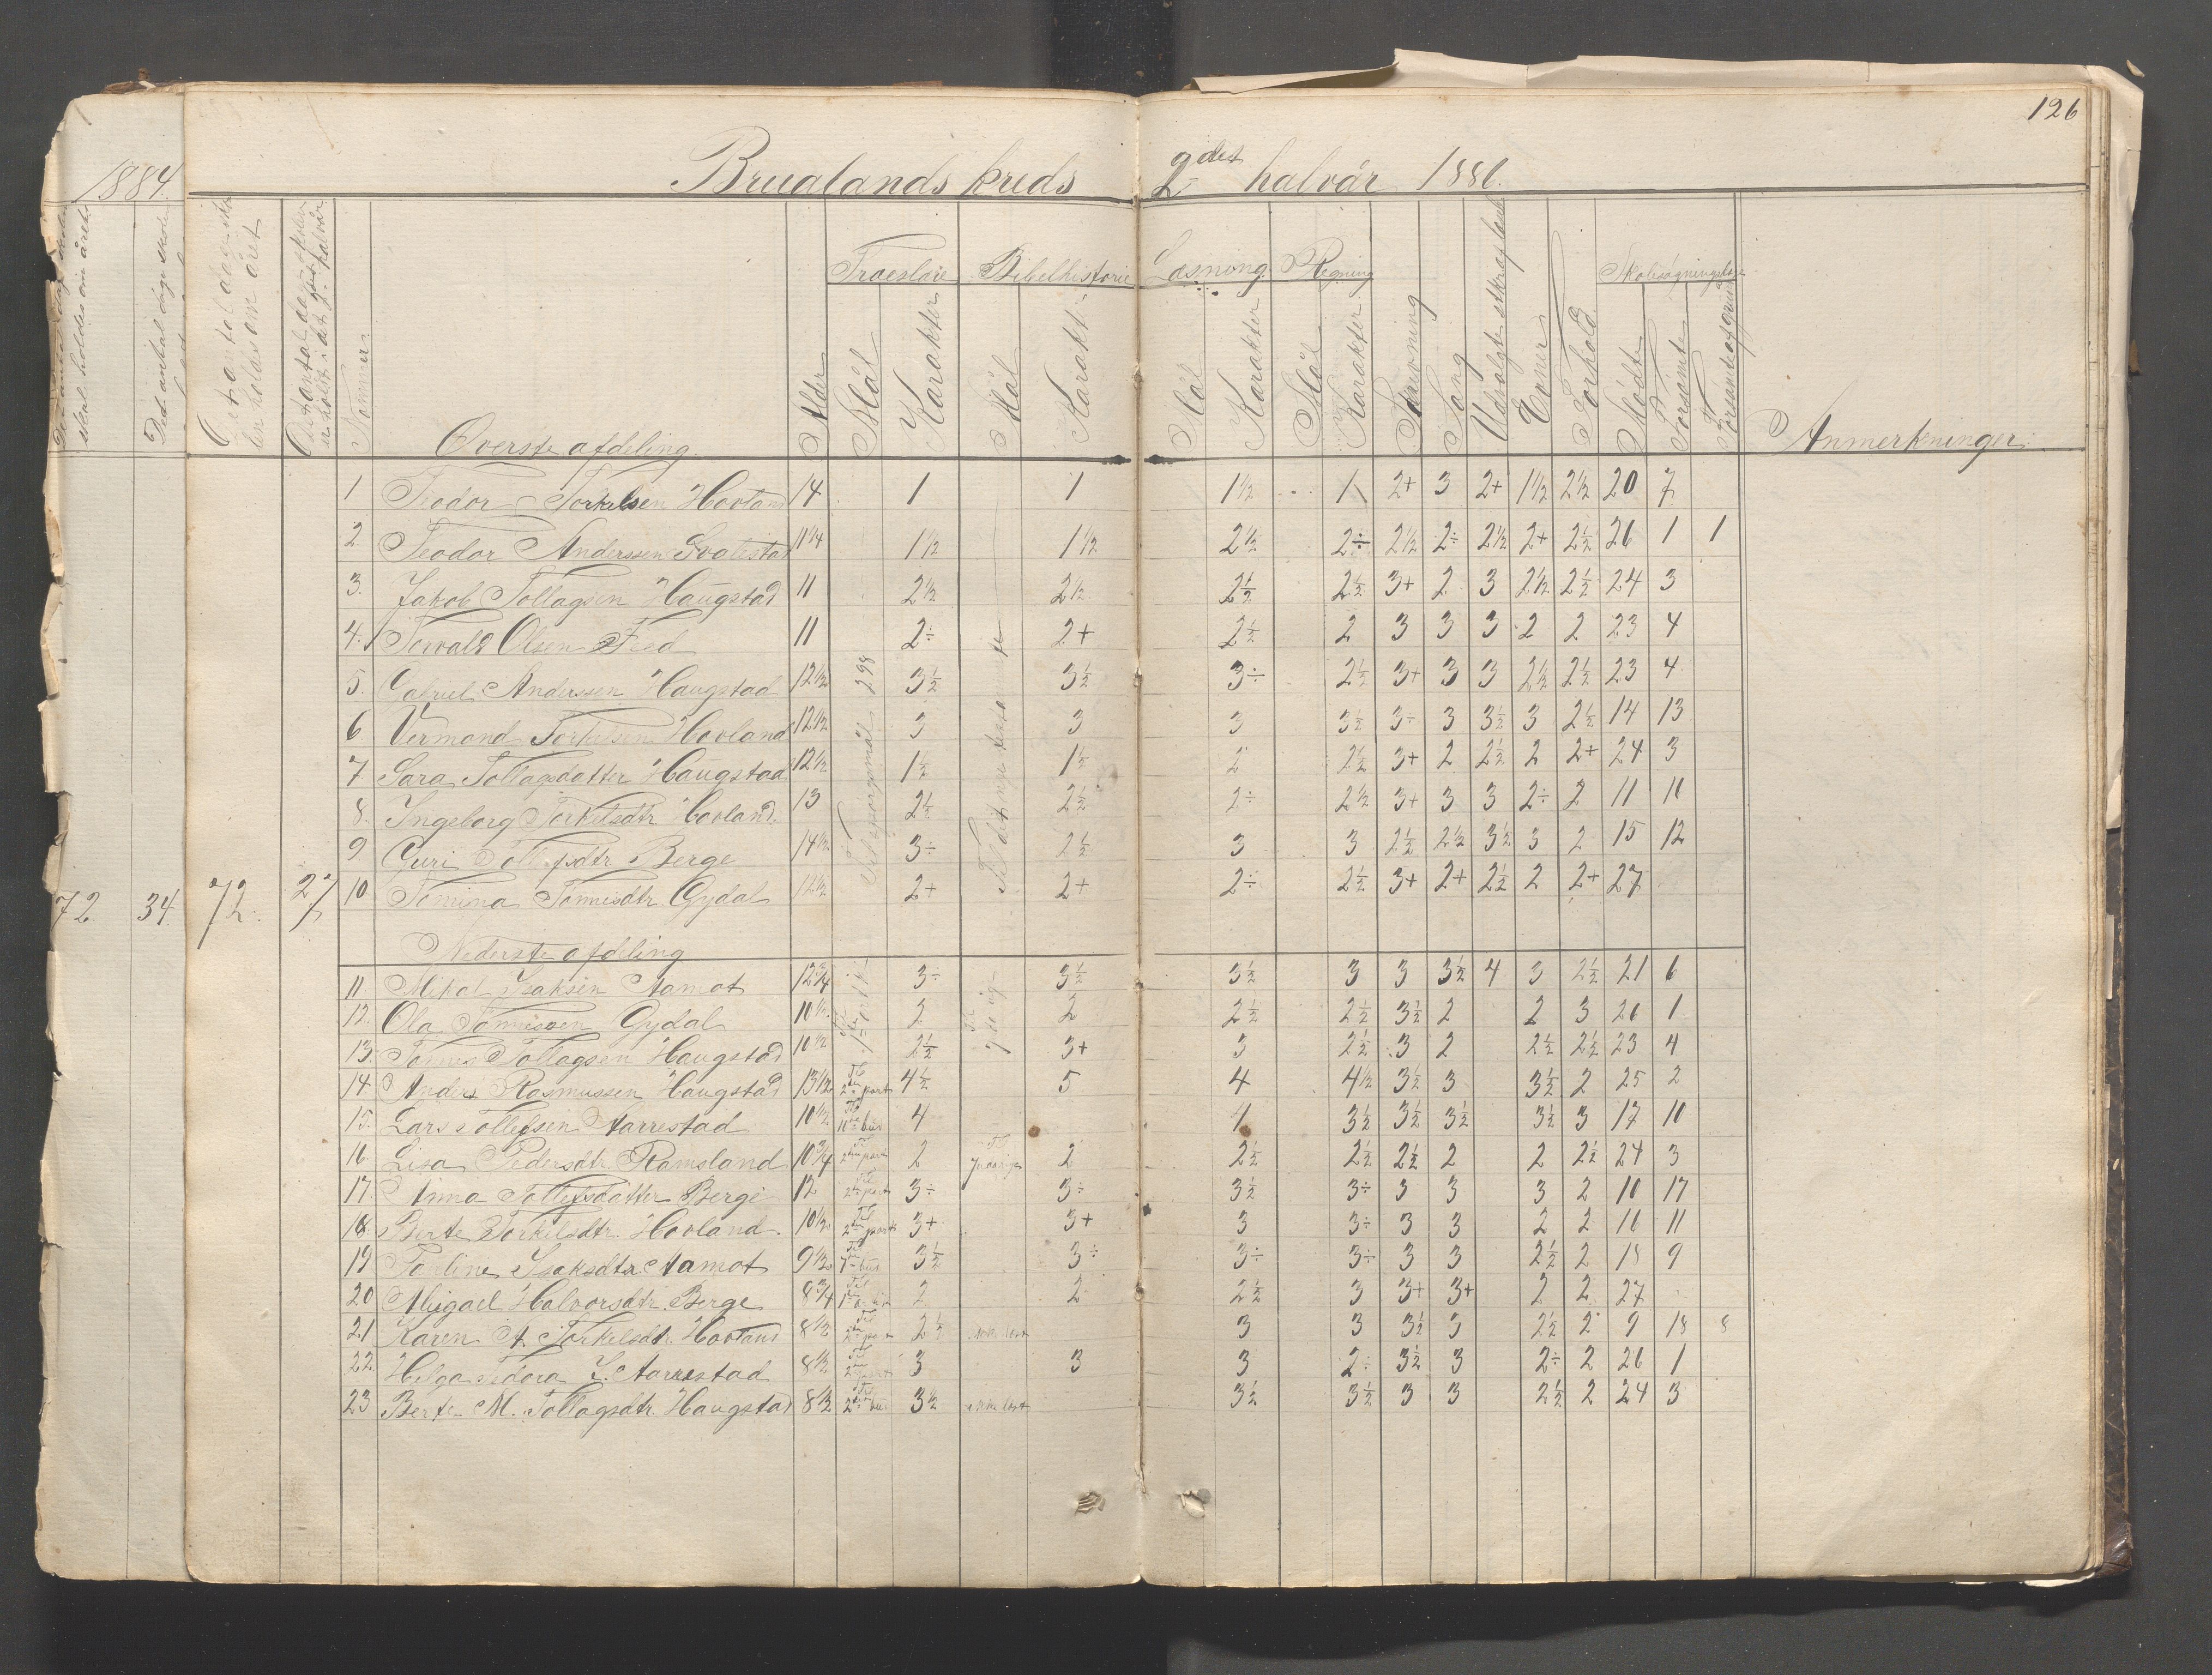 126
1884.
Brualands kreds 2det halvår 1886.
skal holdes om året
Det antal dage skole
Det antal dage skole
er holdt i det halvår
Nommer
Overste afdeling
Alder
Troeslære Bibelhistorie Læsning Regning
Mål Karakter Mål Karakt. Mål Karakter Mål Karakter
Skrivning
Sang
Udvalgte stk. af læseb.
Evner
Forhold
Skolesøgningsdage
Mødte
Forsømte
Anmerkninger
1 Teodor Torkelsen Hovland 14 1 1 1½ 1 2+ 3 2+ 1½ 2½ 20 7
2. Teodor Anderssen 11¼ 1½ 1½ 2½ 2÷ 2½ 2÷ 2½ 2+ 2½ 26 1 1
3. Jakob Tollagsen Haugstad 11 2½ 2½ 2½ 2½ 3+ 2 3 2½ 2½ 24 3
4. Torvald Olsen 11 2÷ 2+ 2½ 2 3 3 3 2 2 23 4
5. Gabriel Anderssen Haugstad 12½ 3½ 3½ 3÷ 2½ 3+ 3 3 2½ 2½ 23 4
6 Vermond Torkelsen Hovland 12½ 3 3 3 3½ 3÷ 3 3½ 3 2½ 14 13
7 Sara Tollagsdatter Haugstad 12½ 1½ 1½ 2 2½ 3+ 2 2½ 2 2+ 24 3
8. Ingeborg Torkelsdtr. Hovland. 13 2½ 2½ 2÷ 2½ 3+ 3 3 2÷ 2 11 11
9 Guri Tollefsdtr. Berge 14½ 3÷ 2½ 3 3 2½ 2½ 3½ 3 2 15 12
10 Tomina Tønnisdtr. Gydal 12½ 2+ 2+ 2÷ 2½ 3+ 2+ 2½ 2 2+ 27
72 34 72. 27
Til det nye testamente
Nederste afdeling
11. Mikal Isaksen Aamot 12¾ 3÷ 3½ 3½ 3 3 3½ 4 3 2½ 21 6
12. Ola Tønnissen Gydal 10½ 2 2 2½ 2½ 3½ 2 2 3 26 1
13. Tollagsen Haugstad 10½ 2½ 3+ 3 2½ 3 2 2½ 2½ 23 4
14. Anders Rasmussen Haugstad 13½ Til 2den part 4½ 5 4 4½ 3½ 3 3½ 2 25 2
15. Lars Tollefsen Aarrestad 10½ 4 4 3½ 3½ 3½ 3½ 3 17 10
16. Lisa Pedersdtr. Ramsland 10¾ Til 2den part 2 2 2½ 2½ 2½ 2 2 2½ 24 3
17. Anna Tollefsdatter Berge 12 Til 2den part 3÷ 3÷ 3½ 3÷ 3 3 3 2 10 17
18 Berte Torkelsdtr. Hovland. 10½ Til 2den part 3+ 3+ 3 3÷ 3 3 2 2 16 11
19 Isaksdtr. Aamot 9½ 3½ 3÷ 3÷ 3÷ 3 3 2½ 2 18 9
20 Abigael Halvorsdtr. Berge 8¾ 2 2 2½ 3 3+ 3+ 2 2 27
21 Karen A. Torkelsdtr. Hovland 8½ Til 2den part 2½ ikke læst 3 3 3½ 3 2½ 2 9 18 8
22. Helga Tedora T. Aarrestad 8½ 3 3 3 2÷ 3½ 3 2÷ 2 26 1
23 Berte M. Tollagsdtr. Haugstad 8½ 3½ ikke læst 3½ 3½ 3 3 2½ 2 24 3